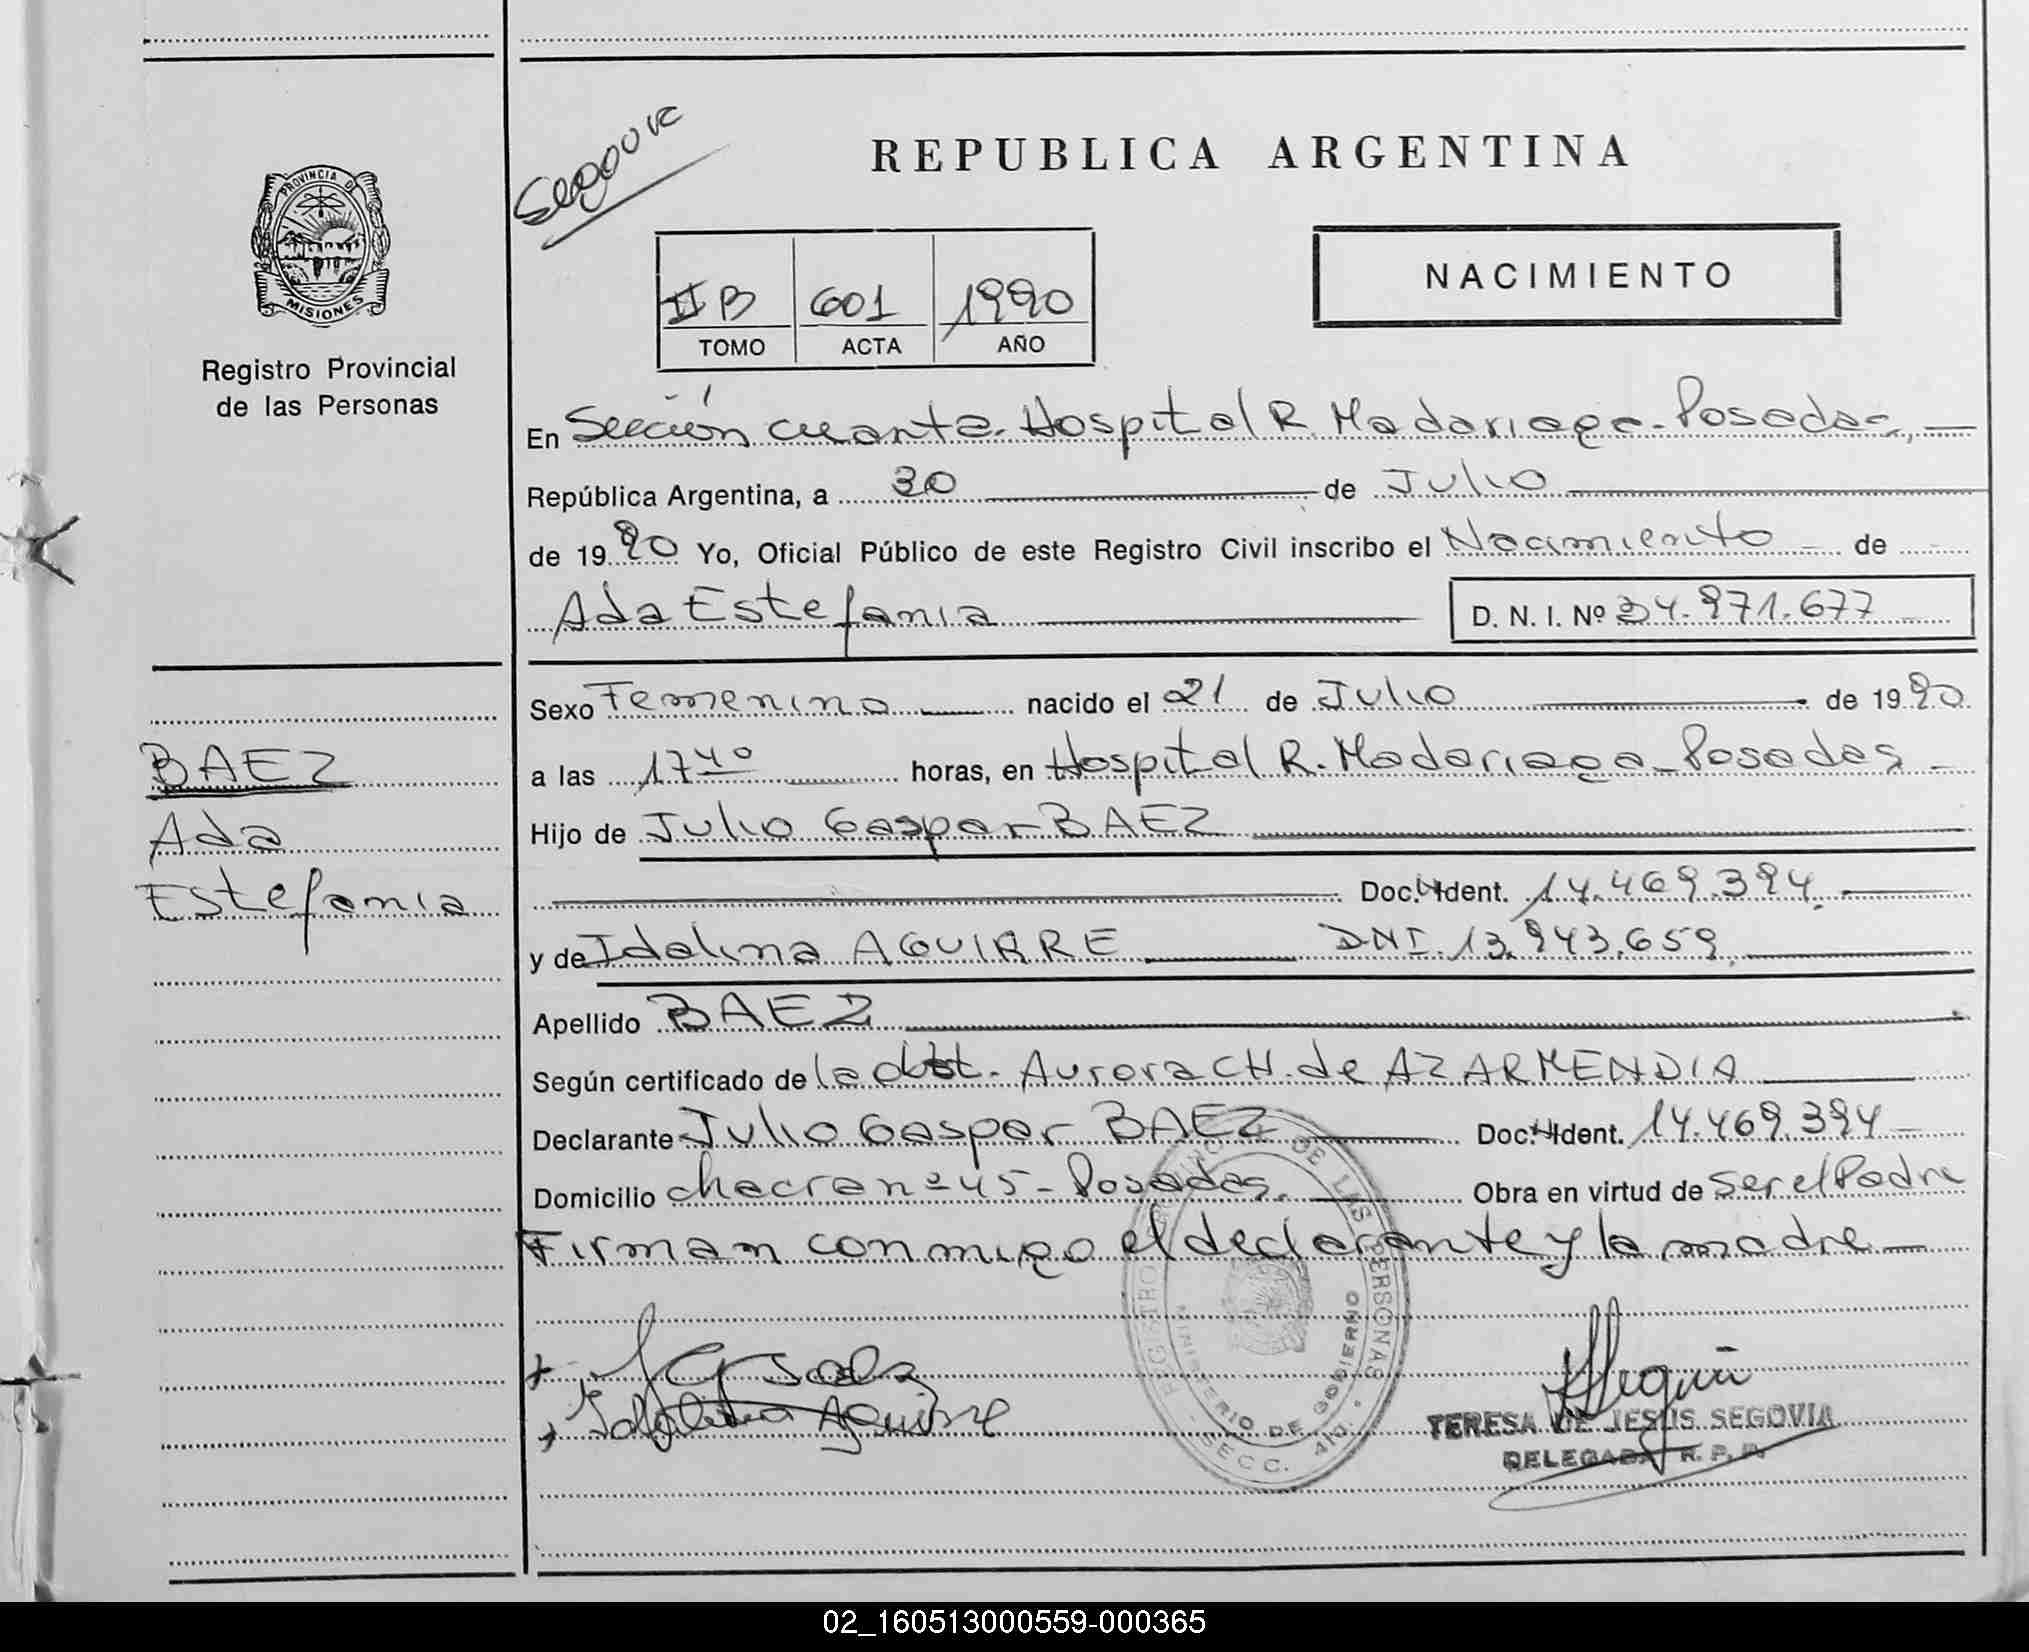 REPUBLICA ARGENTINA
NACIMIENTO
II B 601 1990
TOMO ACTA AÑO
PROVINCIA DE
MISIONES
Registro Provincial
de las Personas
En Sección cuarta. Hospital R. Madariaga - Posadas,
República Argentina, a 30 de Julio
de 1990 Yo, Oficial Público de este Registro Civil inscribo el Nacimiento de
Ada Estefania D. N. I. Nº 34.971.677
Sexo Femenino nacido el 21 de Julio de 1990
a las 17 40 horas, en Hospital R. Madariaga - Posadas
Hijo de Julio Gaspar BAEZ
Doc. Ident. 14.469.394.
y de Idalina AGUIRRE DNI. 13.943.659.
Apellido BAEZ
Según certificado de la obst. Aurora CH. de AZARMENDIA
Declarante Julio Gaspar BAEZ Doc. Ident. 14.469.394
Domicilio chacra nº 45 - Posadas. Obra en virtud de ser el Padre
Firman conmigo el declarante y la madre
BAEZ
Ada
Estefania
Idalina Aguirre
REGISTRO PROVINCIAL DE LAS PERSONAS
MINISTERIO DE GOBIERNO
SECC. 4ta.
TERESA DE JESUS SEGOVIA
DELEGADA R. P. P.
02_160513000559-000365